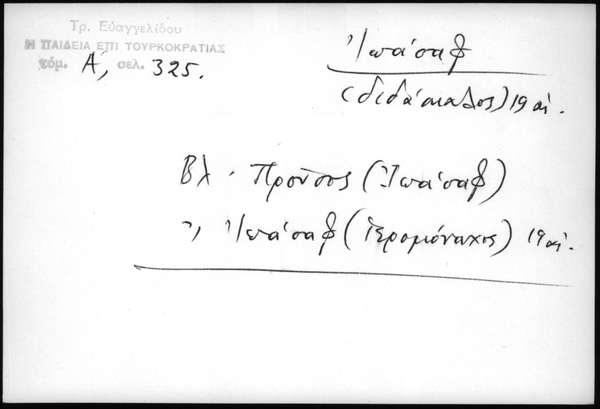 Τρ. Εὐαγγελίδου
Η ΠΑΙΔΕΙΑ ΕΠΙ ΤΟΥΡΚΟΚΡΑΤΙΑΣ
τόμ. Α, σελ. 325.
Ἰωάσαφ
(διδάσκαλος) 19 αἰ.
Βλ. Προῦσσης (Ἰωάσαφ)
〃 Ἰωάσαφ (ἱερομόναχος) 19 αἰ.